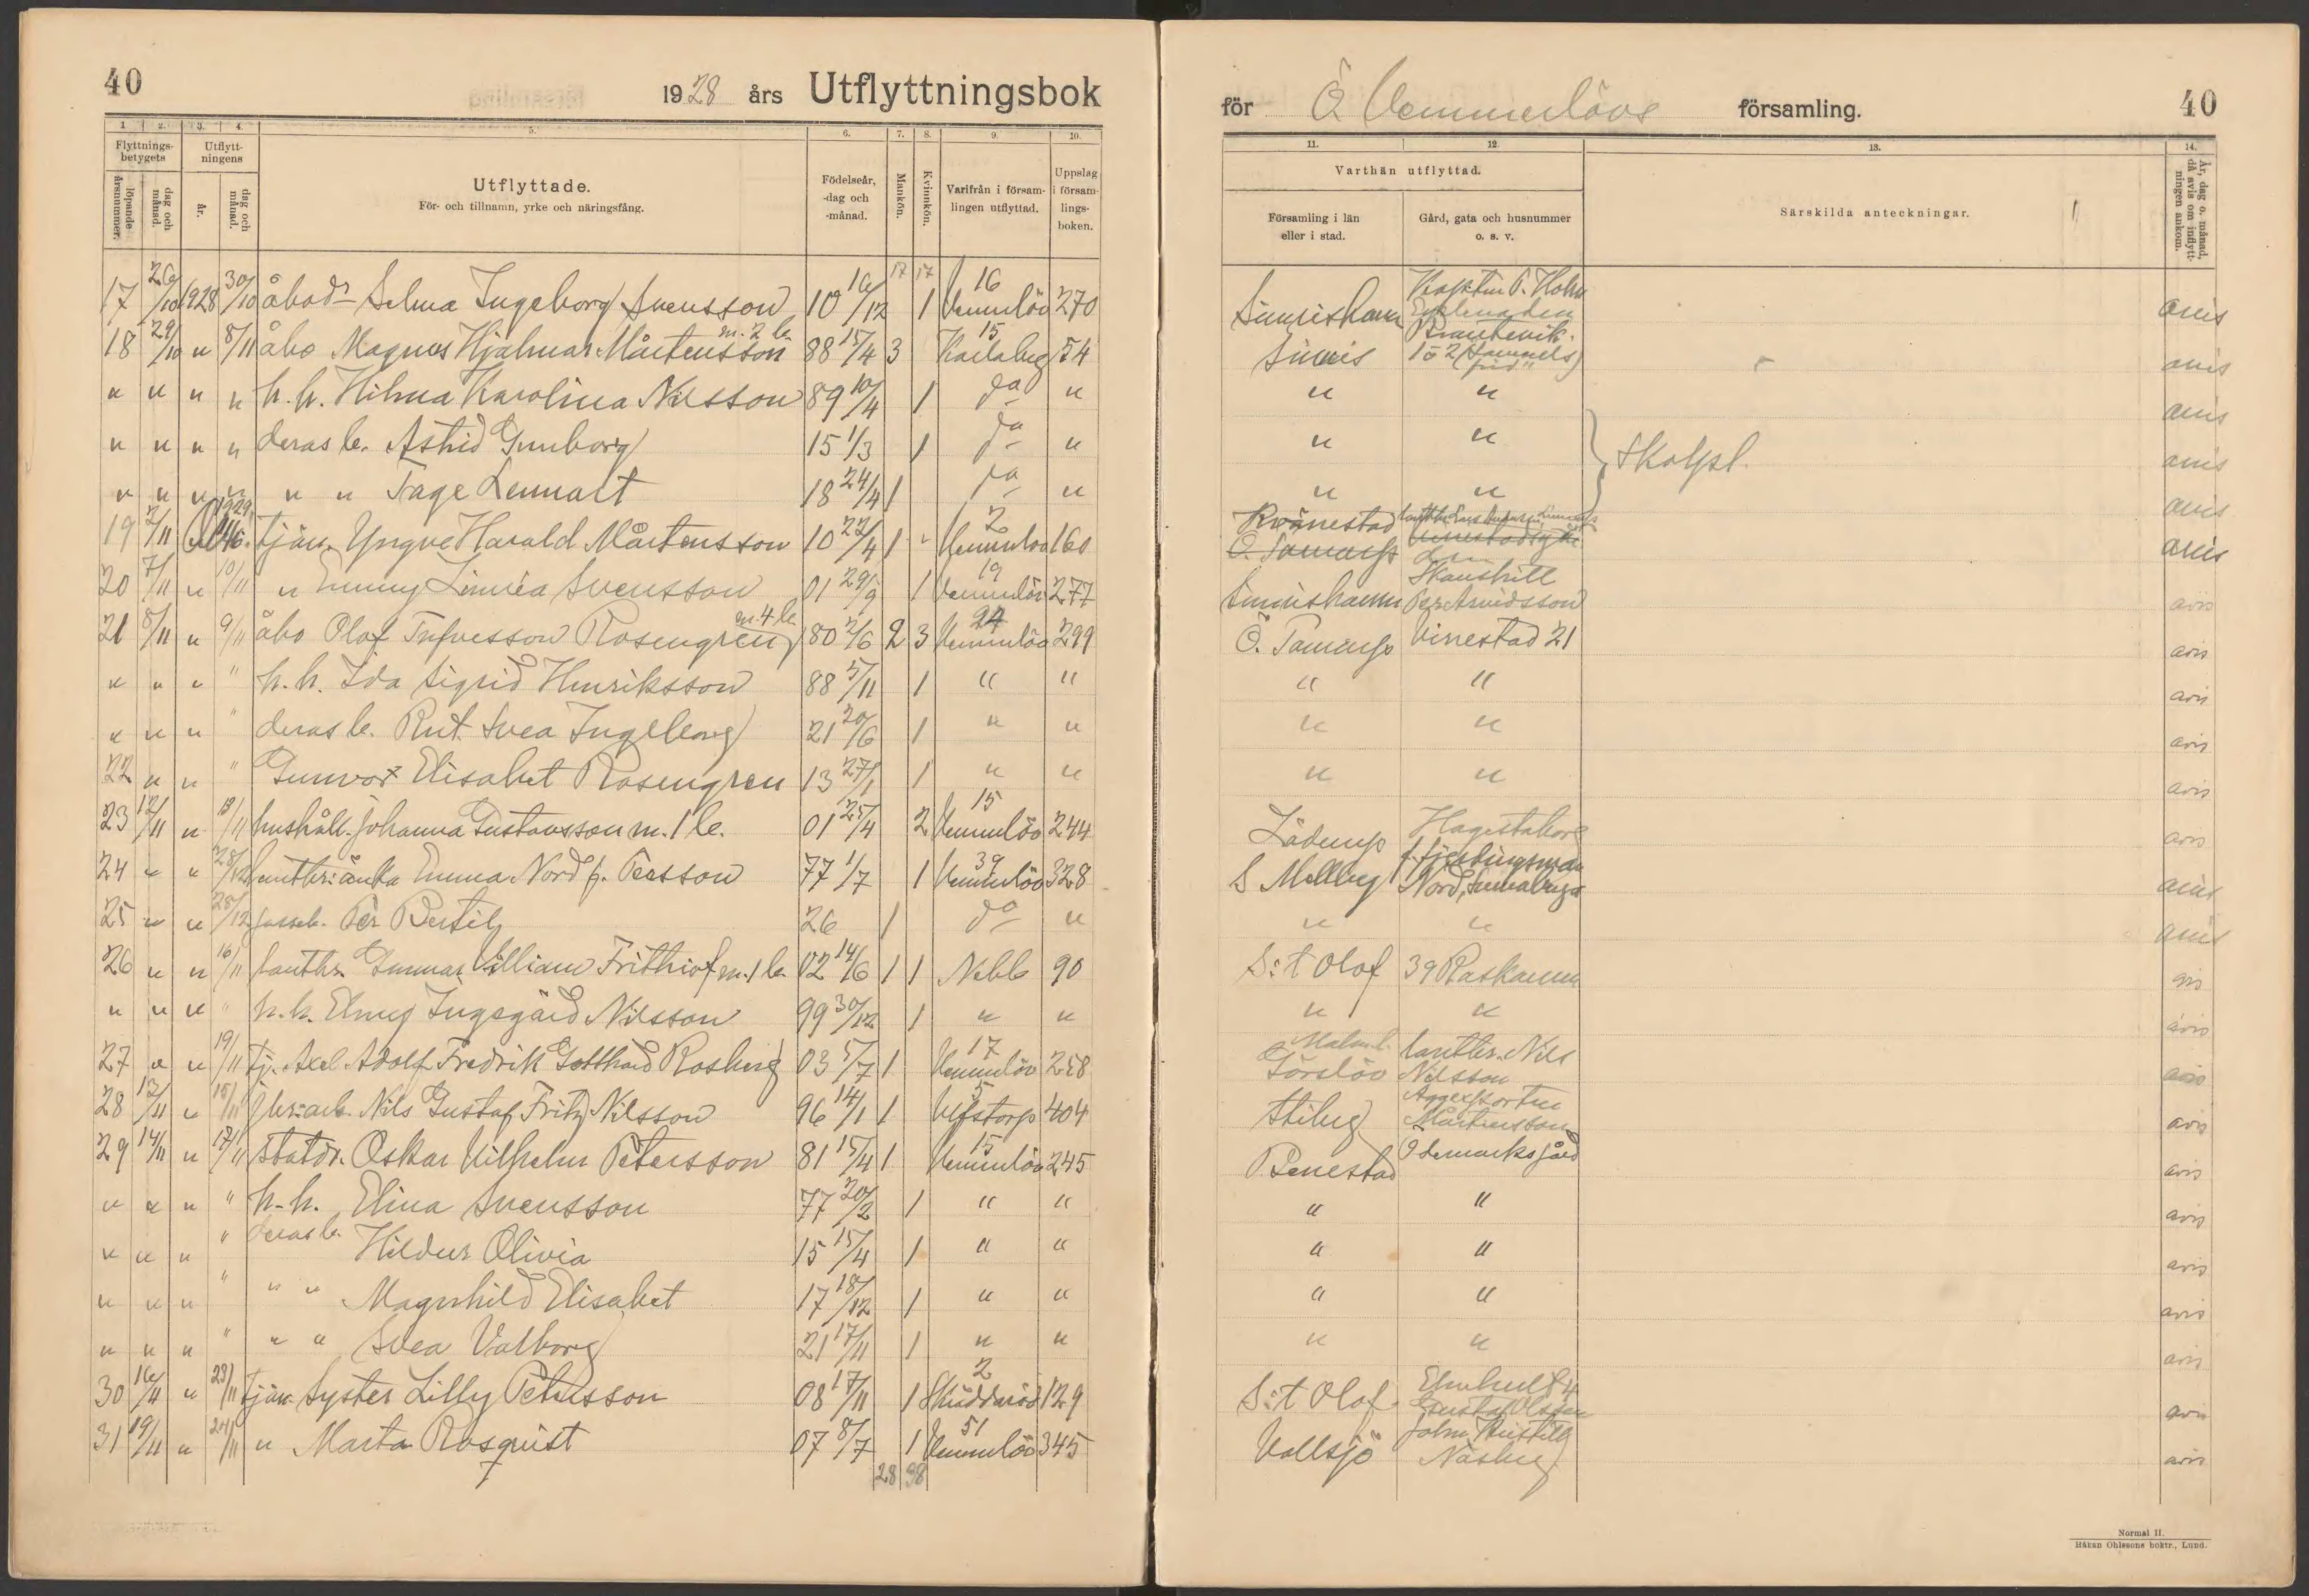 40
1928 års Utflyttningsbok
1. 2. 3. 4. 5. 6. 7. 8. 9. 10.
Flyttningsbetygets
löpande årsnummer.
dag och månad.
Utflyttningens
år.
dag och månad.
Utflyttade.
För- och tillnamn, yrke och näringsfång.
Födelseår, -dag och -månad.
Mankön.
Kvinnkön.
Varifrån i församlingen utflyttad.
Uppslag i församlingsboken.
17 17
17 26/10 1928 30/10 åbodr Selma Ingeborg Svensson 10 16/12 1 16 Vemmlöv 270
18 29/10 " 8/11 åbo Magnus Hjalmar Mårtensson m. 2 b. 88 15/4 3 15 Karlaby 54
" " " " h. h. Hilma Karolina Nilsson 89 10/4 1 do "
" " " " deras b. Astrid Gunborg 15 1/3 1 do "
" " " " " " Tage Lennart 18 24/4 1 do "
19 7/11 1929 Tjän. Yngve Harald Mårtensson 10 22/4 1 2 Vemmlöv 160
20 7/11 " 10/11 " Emmy Linnéa Svensson 01 29/9 1 19 Vemmlöv 277
21 8/11 " 9/11 åbo Olof Tufvesson Rosengren m. 4 b. 80 2/6 2 3 24 Vemmlöv 299
" " " " h. h. Ida Sigrid Henriksson 88 5/11 1 " "
" " " " deras b. Rut Svea Ingeborg 21 20/6 1 " "
22 " " " Gunvor Elisabet Rosengren 13 27/1 1 " "
23 12/11 " 13/11 hushåll. Johanna Gustavsson m. 1 b. 01 25/4 2 15 Vemmlöv 244
24 " " 28/12 lantbr:änka Emma Nord f. Persson 77 1/7 1 39 Vemmlöv 328
25 " " 28/12 Per Bertil 26 1 do "
26 " " 16/11 lantbr. Gunnar Villiam Frithiof m. 1 b. 02 14/6 1 1 Nebb 90
" " " " h. h. Elmy Ingegärd Nilsson 99 30/12 1 " "
27 " " 19/11 Tj. Axel Adolf Fredrik Gotthard Rosberg 03 5/7 1 17 Vemmlöv 258
28 13/11 " 15/11 Nils Gustaf Fritz Nilsson 96 14/1 1 5 Ulfstorp 404
29 14/11 " 17/11 statdr. Oskar Vilhelm Petersson 81 15/4 1 15 Vemmlöv 245
" " " " h. h. Elina Svensson 77 20/2 1 " "
" " " " deras b. Hildur Olivia 15 15/4 1 " "
" " " " " " Magnhild Elisabet 17 18/12 1 " "
" " " " " " Svea Valborg 21 17/11 1 " "
30 16/11 " 23/11 Tjän. Syster Lilly Petersson 08 17/11 1 2 129
31 19/11 " 24/11 " Marta Rosquist 07 8/7 1 51 Vemmlöv 345
28 38
för Ö Vemmerlövs församling. 40
11. 12. 13. 14.
Varthän utflyttad.
Församling i län eller i stad.
Gård, gata och husnummer o. s. v.
Särskilda anteckningar.
År, dag o. månad, då avis om inflyttningen ankom.
Simrishamn Kapten P. Holm avis
Brantevik.
Simris 152 avis
" " avis
" " Skolpl. avis
" " avis
Kvänestad
Ö. Tommarp avis
Simrishamn Per Arvidsson avis
Ö. Tommarp Virrestad 21 avis
" " avis
" " avis
" " avis
Löderup Hagestaborg avis
S Mellby f. fjerdingsman Nord, avis
" " avis
S:t Olof 39 Raskarum avis
" " avis
Malm. l. Görslöv lantbr. Nils Nilsson avis
Stiby Mårtensson avis
Benestad Odemarksgård avis
" " avis
" " avis
" " avis
" " avis
S:t Olof Gustaf Olsson avis
Vallsjö Näsby avis
Normal II.
Håkan Ohlssons boktr., Lund.